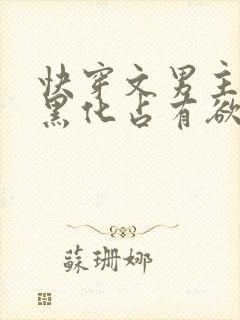 快穿文男主
黑化占有欲
蘇珊娜